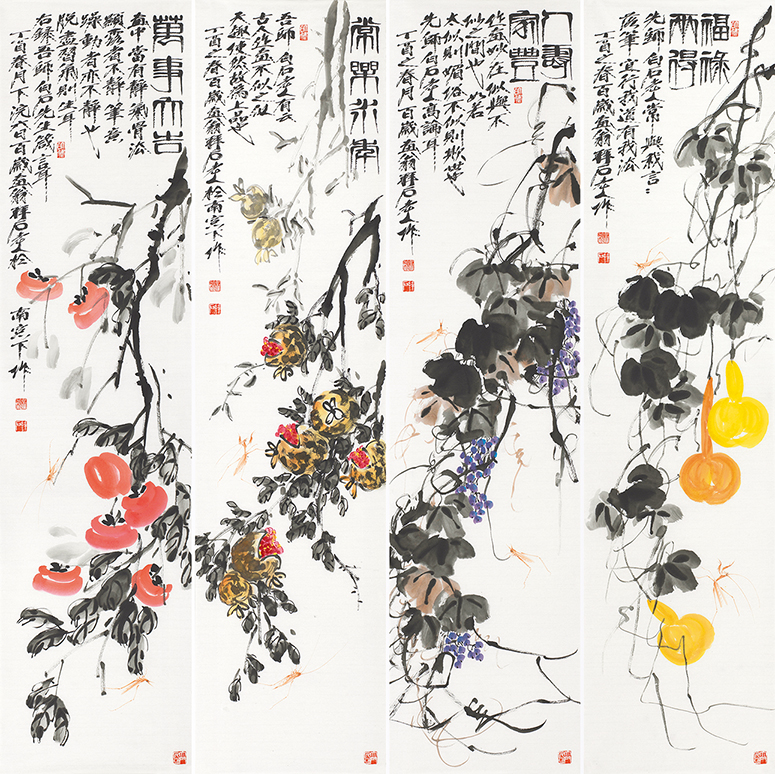 福祿
兩得
先師白石老人常與我言：
落筆宜行我道有我法
丁酉之春百歲畫翁釋石老人作
人壽
家豐
作画妙在似與不
似之間也如若
太似則媚俗不似則欺世也
先師白石老人高論耳
丁酉之春月百歲畫翁釋石老人作
常樂永年
吾師白石老人有云
古人作画不似之似
天趣使然故為上品也
丁酉之春百歲畫翁釋石老人於南窗下作
萬事大吉
畫中當有靜氣骨法
顯露者不靜筆意
躁動者亦不靜也
脫盡習氣則生耳
右錄吾師白石先生箴言耳
丁酉春月下浣八日百歲畫翁釋石老人於
南窗下作